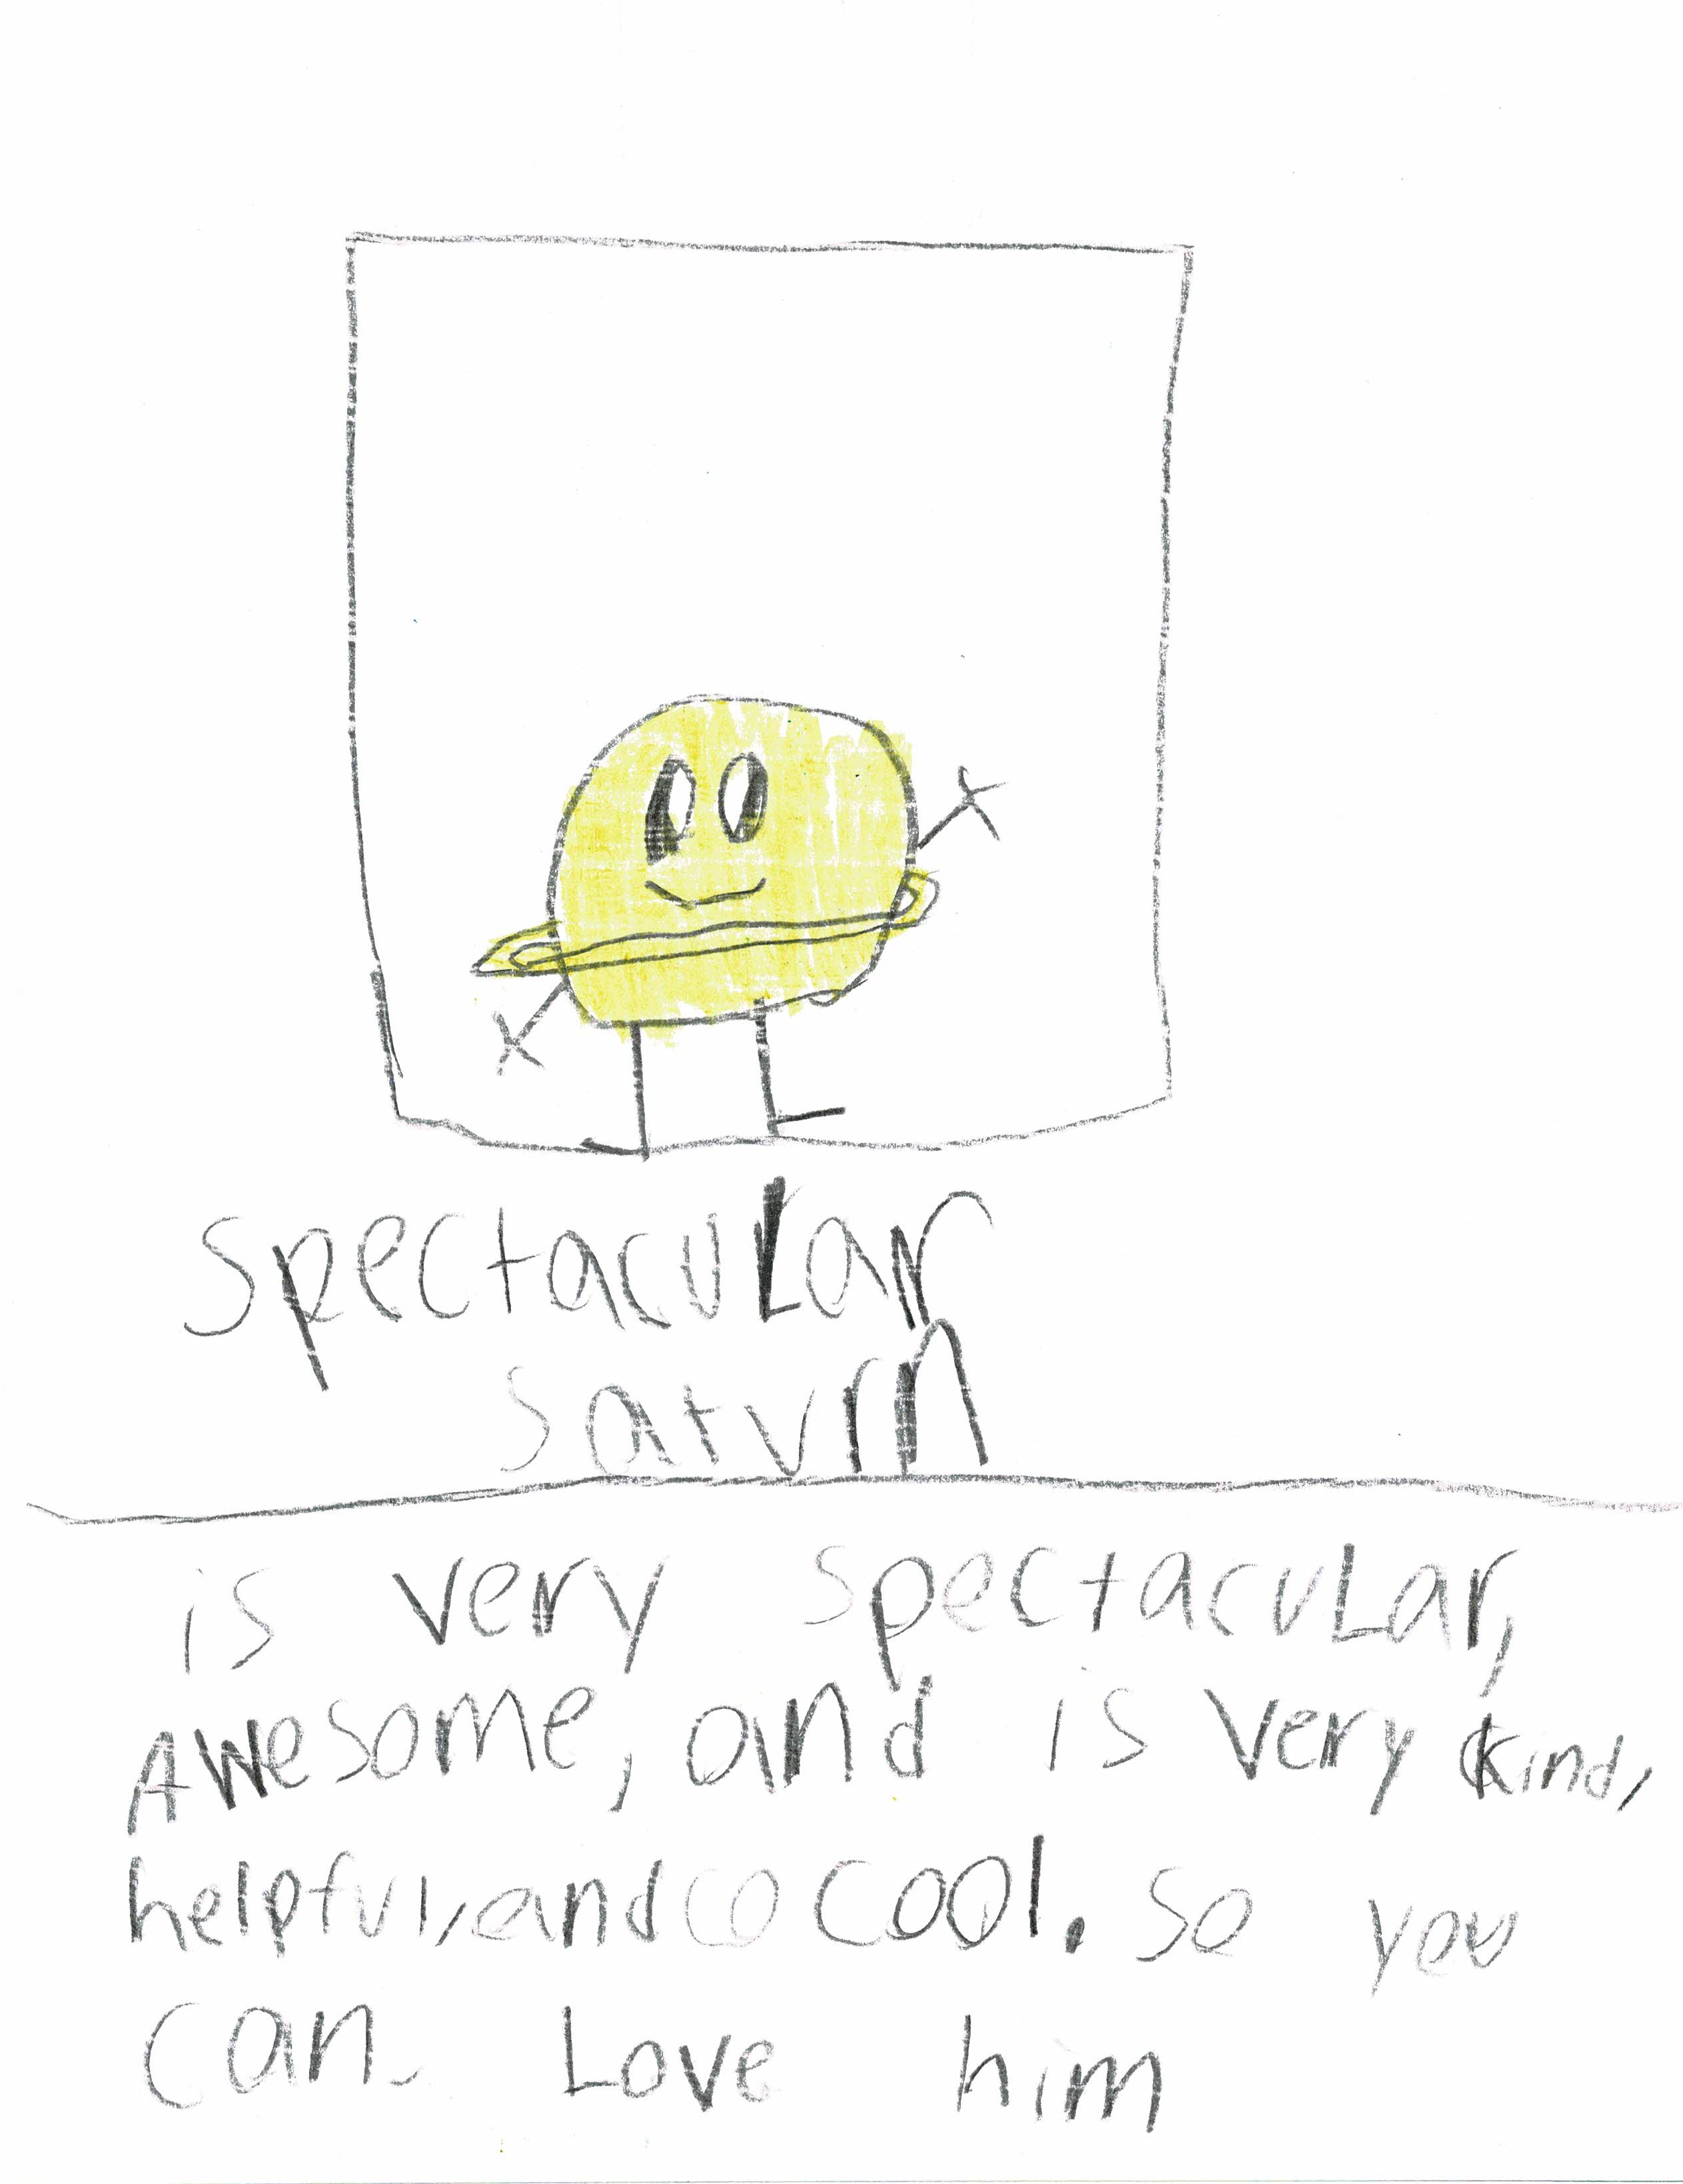 Spectacular
Saturn
is very spectacular,
Awesome, and is very kind,
helpful, and co cool. So you
can Love him